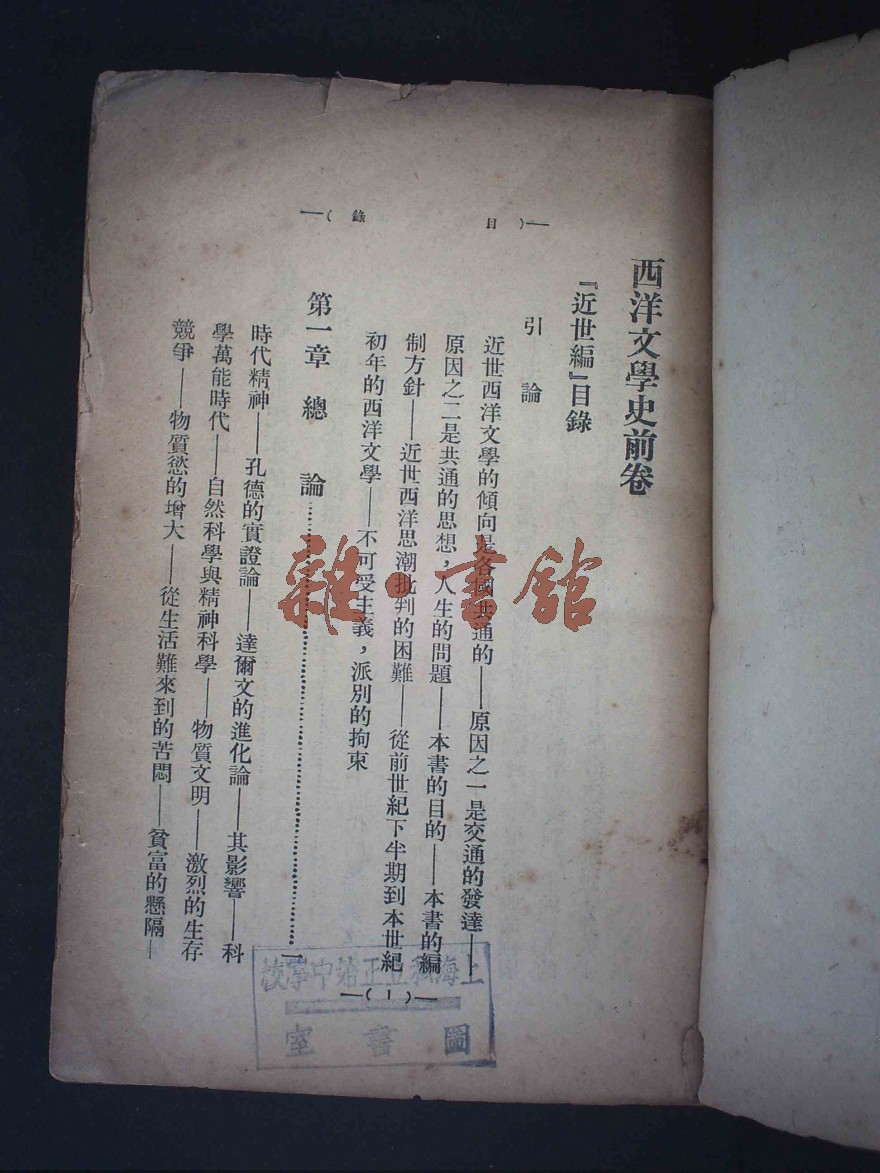 —( 錄　目 )—
西洋文學史前卷
『近世編』目錄
引　論
近世西洋文學的傾向是各國共通的——原因之一是交通的發達——
原因之二是共通的思想，人生的問題——本書的目的——本書的編
制方針——近世西洋思潮批判的困難——從前世紀下半期到本世紀
初年的西洋文學——不可受主義，派別的拘束
第一章　總　論…………………………一
時代精神——孔德的實證論——達爾文的進化論——其影響——科
學萬能時代——自然科學與精神科學——物質文明——激烈的生存
競爭——物質慾的增大——從生活難來到的苦悶——貧富的懸隔—
—( 1 )—
上海私立正始中學校
圖書室
雜·書館